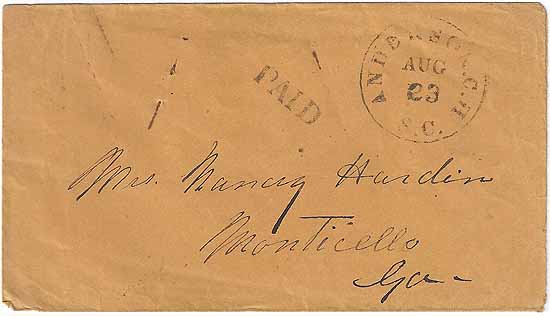 PAID
ANDERSON C.H.
AUG
23
S.C.
Mrs. Nancy Hardin
Monticello
Ga-